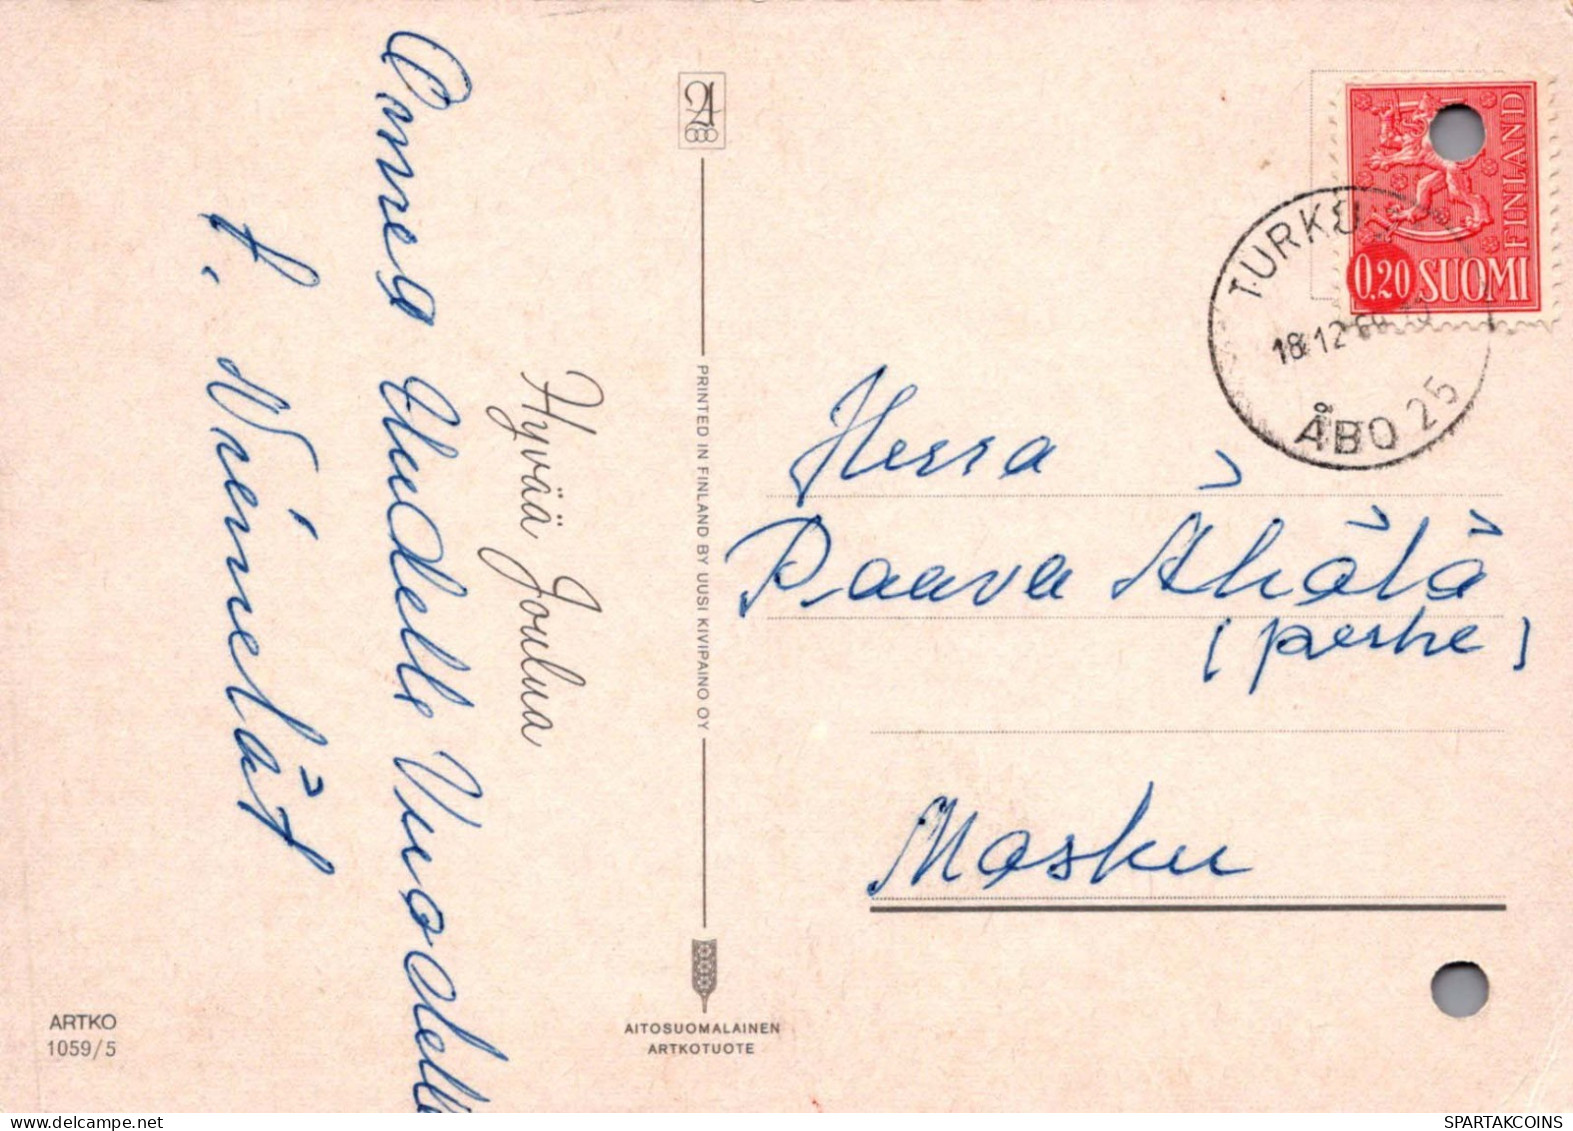 Onnea Uudelle Vuodelle
t. Väinelät
Hyvää Joulua
PRINTED IN FINLAND BY UUSI KIVIPAINO OY
AITOSUOMALAINEN
ARTKOTUOTE
ARTKO
1059/5
FINLAND
0,20 SUOMI
TURKU
18.12.69
ÅBO 25
Herra
Paava Ähätä
(perhe)
Masku
SPARTAKCOINS